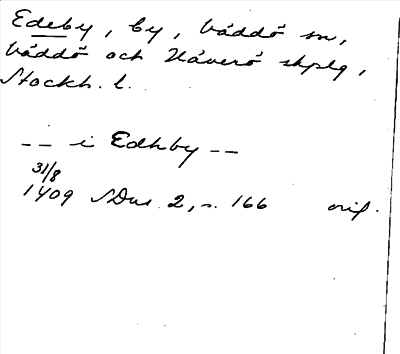 Edeby, by, Väddö sn,
Väddö och Häverö skplg,
Stockh. l.
-- i Edhby --
31/8
1409 SDns 2, s. 166 orig.